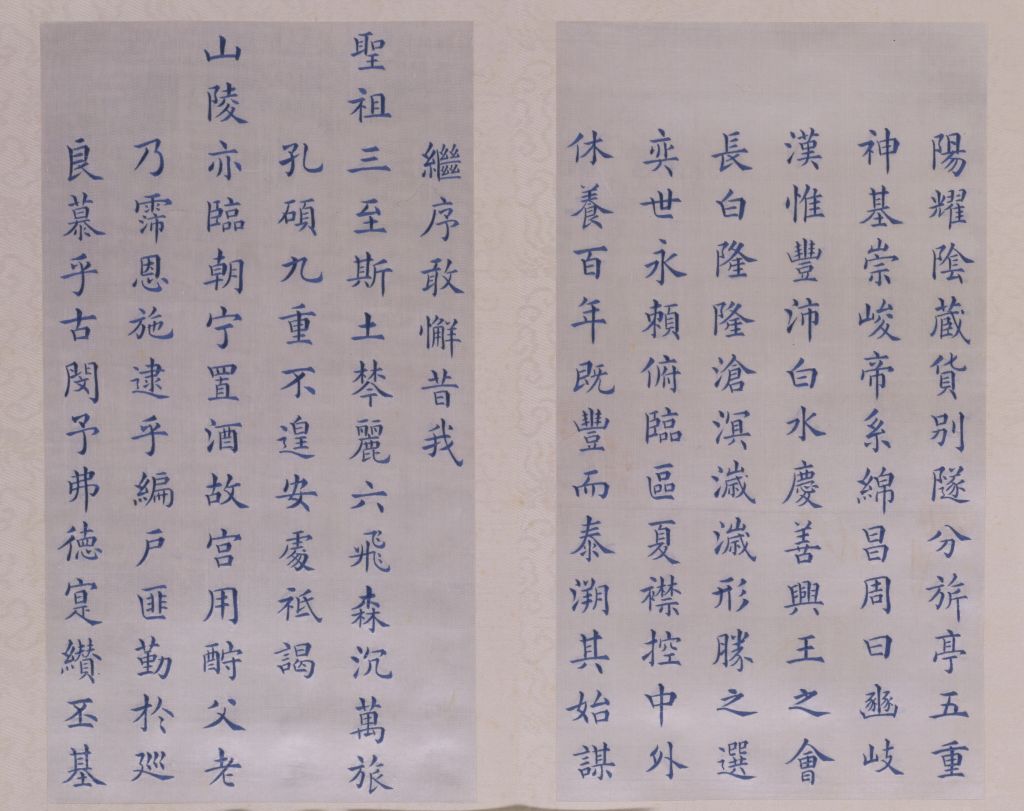 陽耀隂蔵貨別隧分旂亭五重
神基崇峻帝系綿昌周曰豳岐
漢惟豐沛白水慶善興王之會
長白隆隆滄溟濊濊形勝之選
奕世永賴俯臨區夏襟控中外
休養百年既豐而泰溯其始謀
繼序敢懈昔我
聖祖三至斯土棽麗六飛森沉萬旅
孔碩九重不遑安處祗謁
山陵亦臨朝宁置酒故宫用酧父老
乃霈恩施逮乎編戶匪勤於廵
良慕乎古閔予弗德寔纘丕基